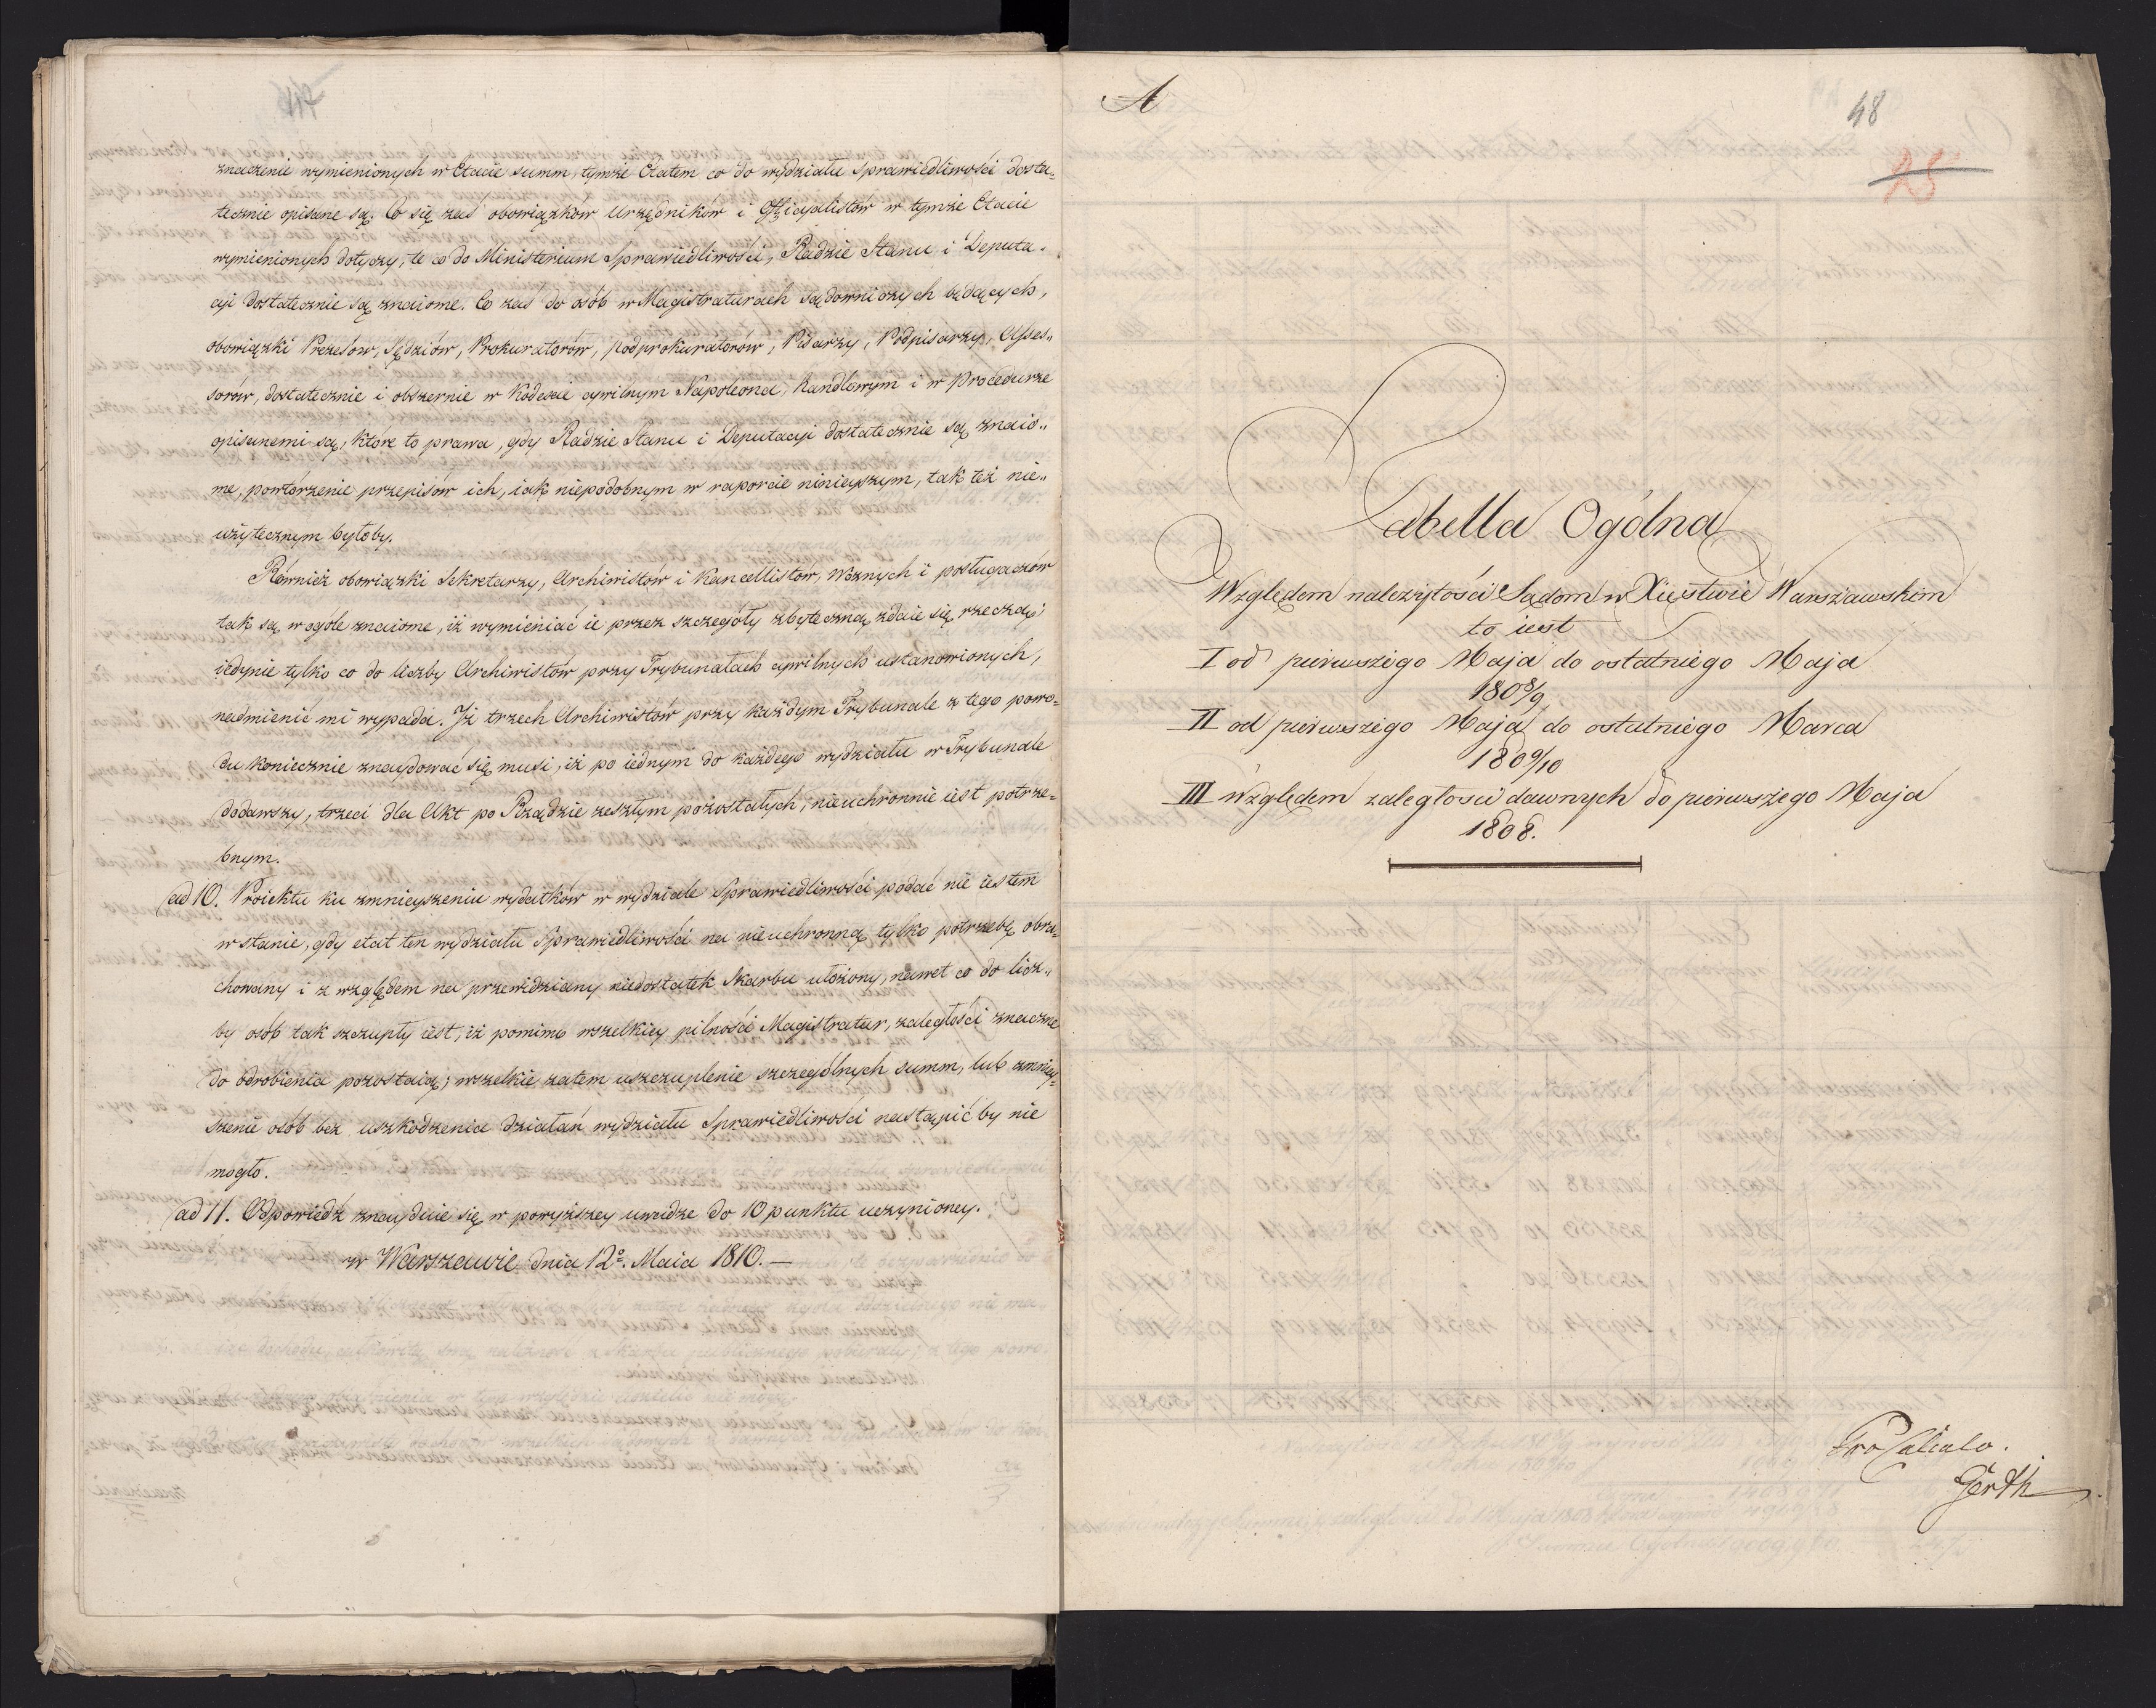 znaczenie wymienionych w Etacie summ, tymże Etatem co do wydziału Sprawiedliwości dosta-
tecznie opisane są. Co się zaś obowiązków Urzędników i Officyalistów w tymże Etacie
wymienionych dotyczy, te co do Ministerium Sprawiedliwości, Radzie Stanu i Deputa-
cyi dostatecznie są znaiome. Co zaś do osób w Magistraturach sądowniczych będących,
obowiązki Prezesów, Sędziów, Prokuratorów, podprokuratorów, Pisarzy, Podpisarzy, Asses„
sorów, dostatecznie i obszernie w Kodexie cywilnym Napoleona, handlowym i w Procedurze
opisanemi są, które to prawa, gdy Radzie Stanu i Deputacyi dostatecznie są znaio„
me, powtórzenie przepisów ich, iak niepodobnym w raporcie ninieyszym, tak też nie„
użytecznym byłoby.
Również obowiązki Sekretarzy, Archiwistów i Kancellistow, Woznych i posługaczów
tak są w ogóle znaiome, iż wymieniać ie przez szczegóły zbyteczną zdaie się rzeczą;
iedynie tylko co do liczby Archiwistów przy Trybunałach cywilnych ustanowionych,
nadmienić mi wypada. Iż trzech Archiwistów przy każdym Trybunale z tego powo-
du koniecznie znaydować się musi, iż po iednym do każdego wydziału w Trybunale
dodawszy, trzeci dla Akt po Rządzie zeszłym pozostałych, nieuchronnie iest potrze-
bnym.
ad 10. Proiektu ku zmnieyszeniu wydatków w wydziale Sprawiedliwości podać nie iestem
w stanie, gdy etat ten wydziału Sprawiedliwości na nieuchronną tylko potrzebę obra-
chowany i z względem na przewidziany niedostatek Skarbu ułożony, nawet co do licz„
by osób tak szczupły iest, iż pomimo wszelkiey pilności Magistratur, zaległości znaczne
do odrobienia pozostaią; wszelkie zatem uszczuplenie szczególnych summ, lub zmniey-
szenie osób bez uszkodzenia działań wydziału Sprawiedliwości nastąpić by nie
mogło.
ad 11. Odpowiedź znayduie się w powyższey uwadze do 10 punktu uczynioney.
w Warszawie dnia 12º. Maia 1810. —
A
48
25
Tabella Ogólna
Względem należytości Sądom w Xięstwie Warszawskim
to iest
I od pierwszego Maja do ostatniego Maja
1808/9
II od pierwszego Maja do ostatniego Marca
1809/10
III względem zaległości dawnych do pierwszego Maja
1808.
Pro Calculo.
Gerth